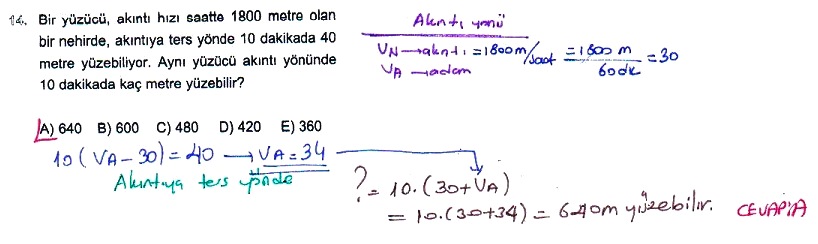 14. Bir yüzücü, akıntı hızı saatte 1800 metre olan
bir nehirde, akıntıya ters yönde 10 dakikada 40
metre yüzebiliyor. Aynı yüzücü akıntı yönünde
10 dakikada kaç metre yüzebilir?
A) 640 B) 600 C) 480 D) 420 E) 360
Akıntı yönü
VN → akıntı = 1800m/saat = 1800 m / 60dk = 30
VA → adam
10(VA - 30) = 40 → VA = 34
Akıntıya ters yönde
? = 10.(30+VA)
= 10.(30+34) = 640m yüzebilir.
CEVAP:A